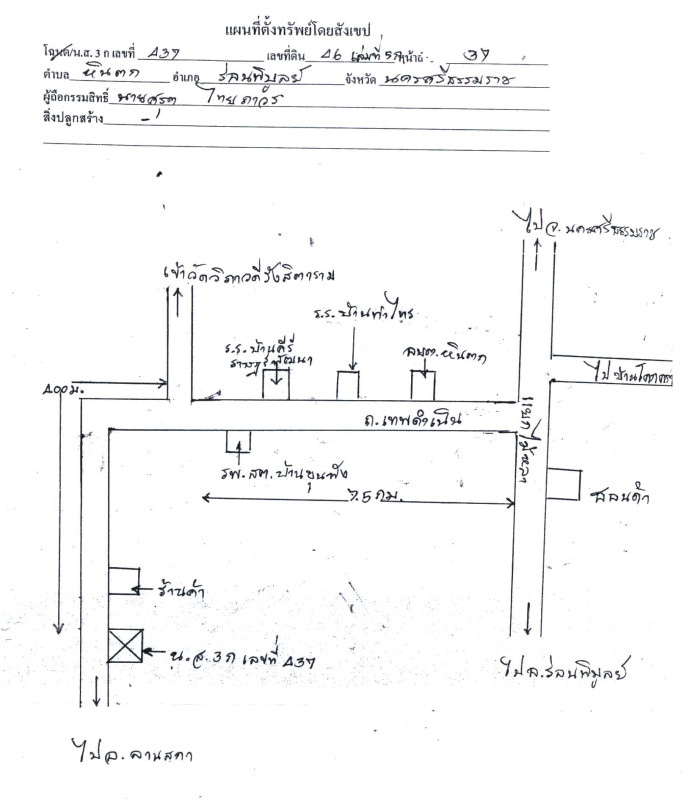 แผนที่ตั้งทรัพย์โดยสังเขป
โฉนด/น.ส. 3 ก เลขที่ 437 เลขที่ดิน 46 เล่มที่ 5ก หน้า 37
ตำบล หินตก อำเภอ ร่อนพิบูลย์ จังหวัด นครศรีธรรมราช
ผู้ถือกรรมสิทธิ์ ไทยถาวร
สิ่งปลูกสร้าง -
ไป จ. นครศรีธรรมราช
เข้าวัดวิภาวดีรังสิตาราม
ร.ร. บ้านท่าไทร
ร.ร. บ้านคีรี
ราษฎร์พัฒนา
อบต. หินตก
400 ม.
ไปบ้าน
ถ. เทพดำเนิน
แยก
รพ. สต. บ้านขุนพัง
7.5 กม.
ร้านค้า
น.ส. 3 ก เลขที่ 437
ไป อ. ร่อนพิบูลย์
ไป อ. ลานสกา